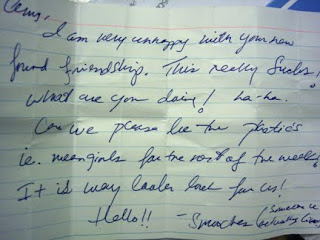 I am very unhappy with your new
found friendship. This really Sucks!
What are you doing! ha-ha.
Can we please be the plastics
ie. meangirls for the rest of the week?
It is way look for us!
Hello!!